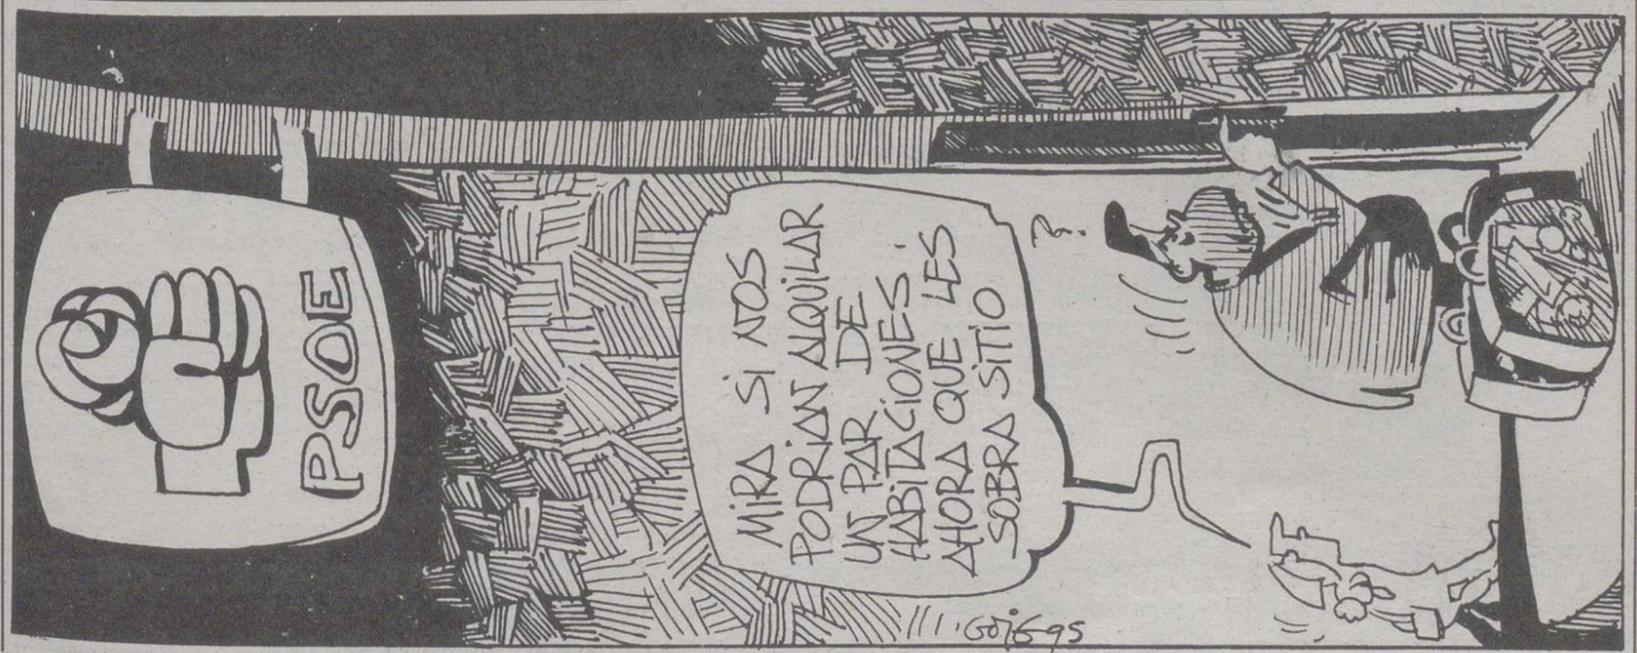 PSOE
MIRA SI NOS
PODRÍAN ALQUILAR
UN PAR DE
HABITACIONES.
AHORA QUE LES
SOBRA SITIO
?